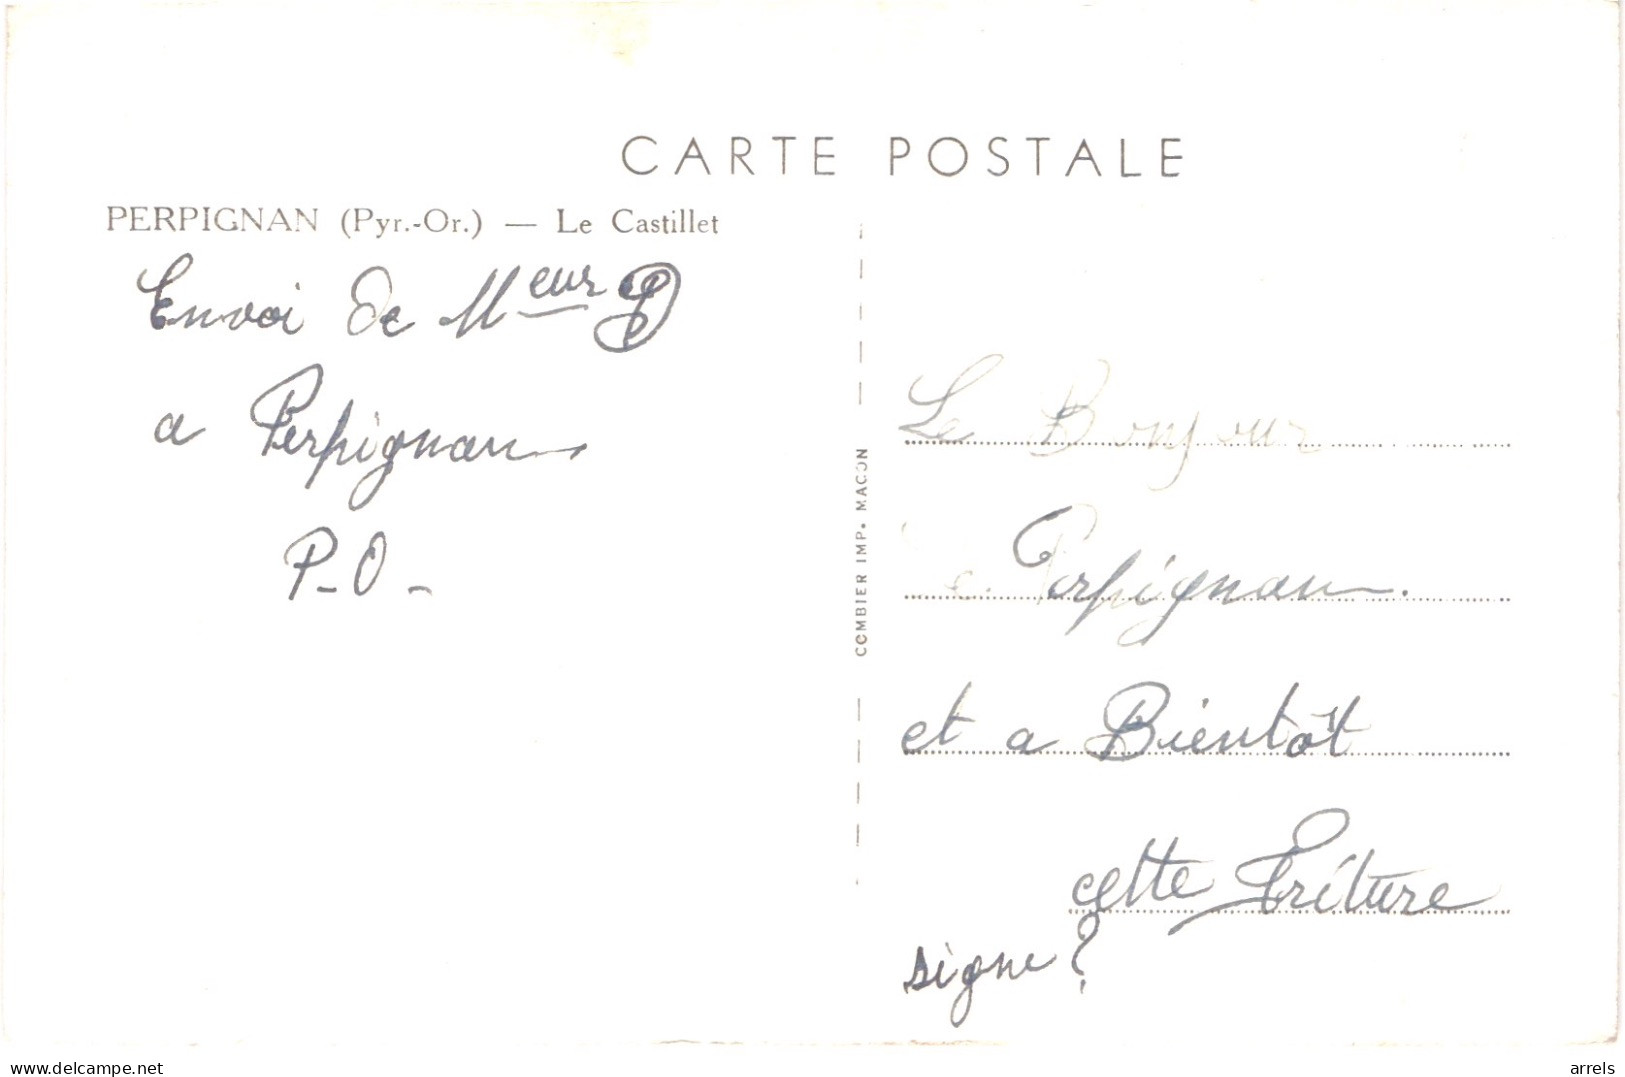 CARTE POSTALE
PERPIGNAN (Pyr.-Or.) — Le Castillet
Envoi De Meur
a Perpignan
P-O-
COMBIER IMP. MACON
Le Bonjour
Perpignan.
et a Bientôt
cette friture
signe ?
delcampe.net
arrels